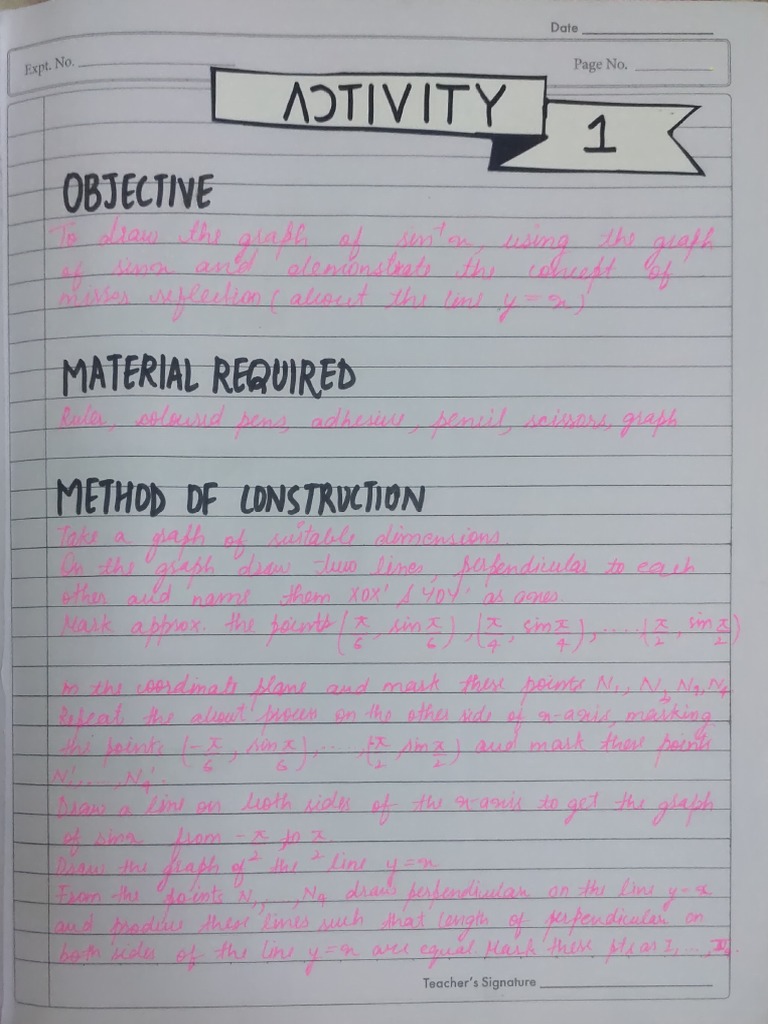 Date
Expt. No.
Page No.
ACTIVITY
1
OBJECTIVE
To draw the graph of sin⁻¹x, using the graph
of sinx and demonstrate the concept of
mirror reflection (about the line y = x)
MATERIAL REQUIRED
Ruler, coloured pens, adhesive, pencil, scissors, graph
METHOD OF CONSTRUCTION
Take a graph of suitable dimensions.
On the graph draw two lines, perpendicular to each
other and name them XOX' & YOY' as axes.
Mark approx. the points (π/6, sin π/6), (π/4, sin π/4), .... (π/2, sin π/2)
in the coordinate plane and mark these points N₁, N₂, N₃, N₄
Repeat the about process on the other side of x-axis, marking
the points (-π/6, sin π/6), ...., (-π/2, sin π/2) and mark these points
N₁', ..., N₄'.
Draw a line on both sides of the x-axis to get the graph
of sinx from -π/2 to π/2.
Draw the graph of the line y=x
From the points N₁, ..., N₄ draw perpendicular on the line y=x
and produce these lines such that length of perpendicular on
both sides of the line y=x are equal. Mark these pts as I₁ ...,
Teacher's Signature